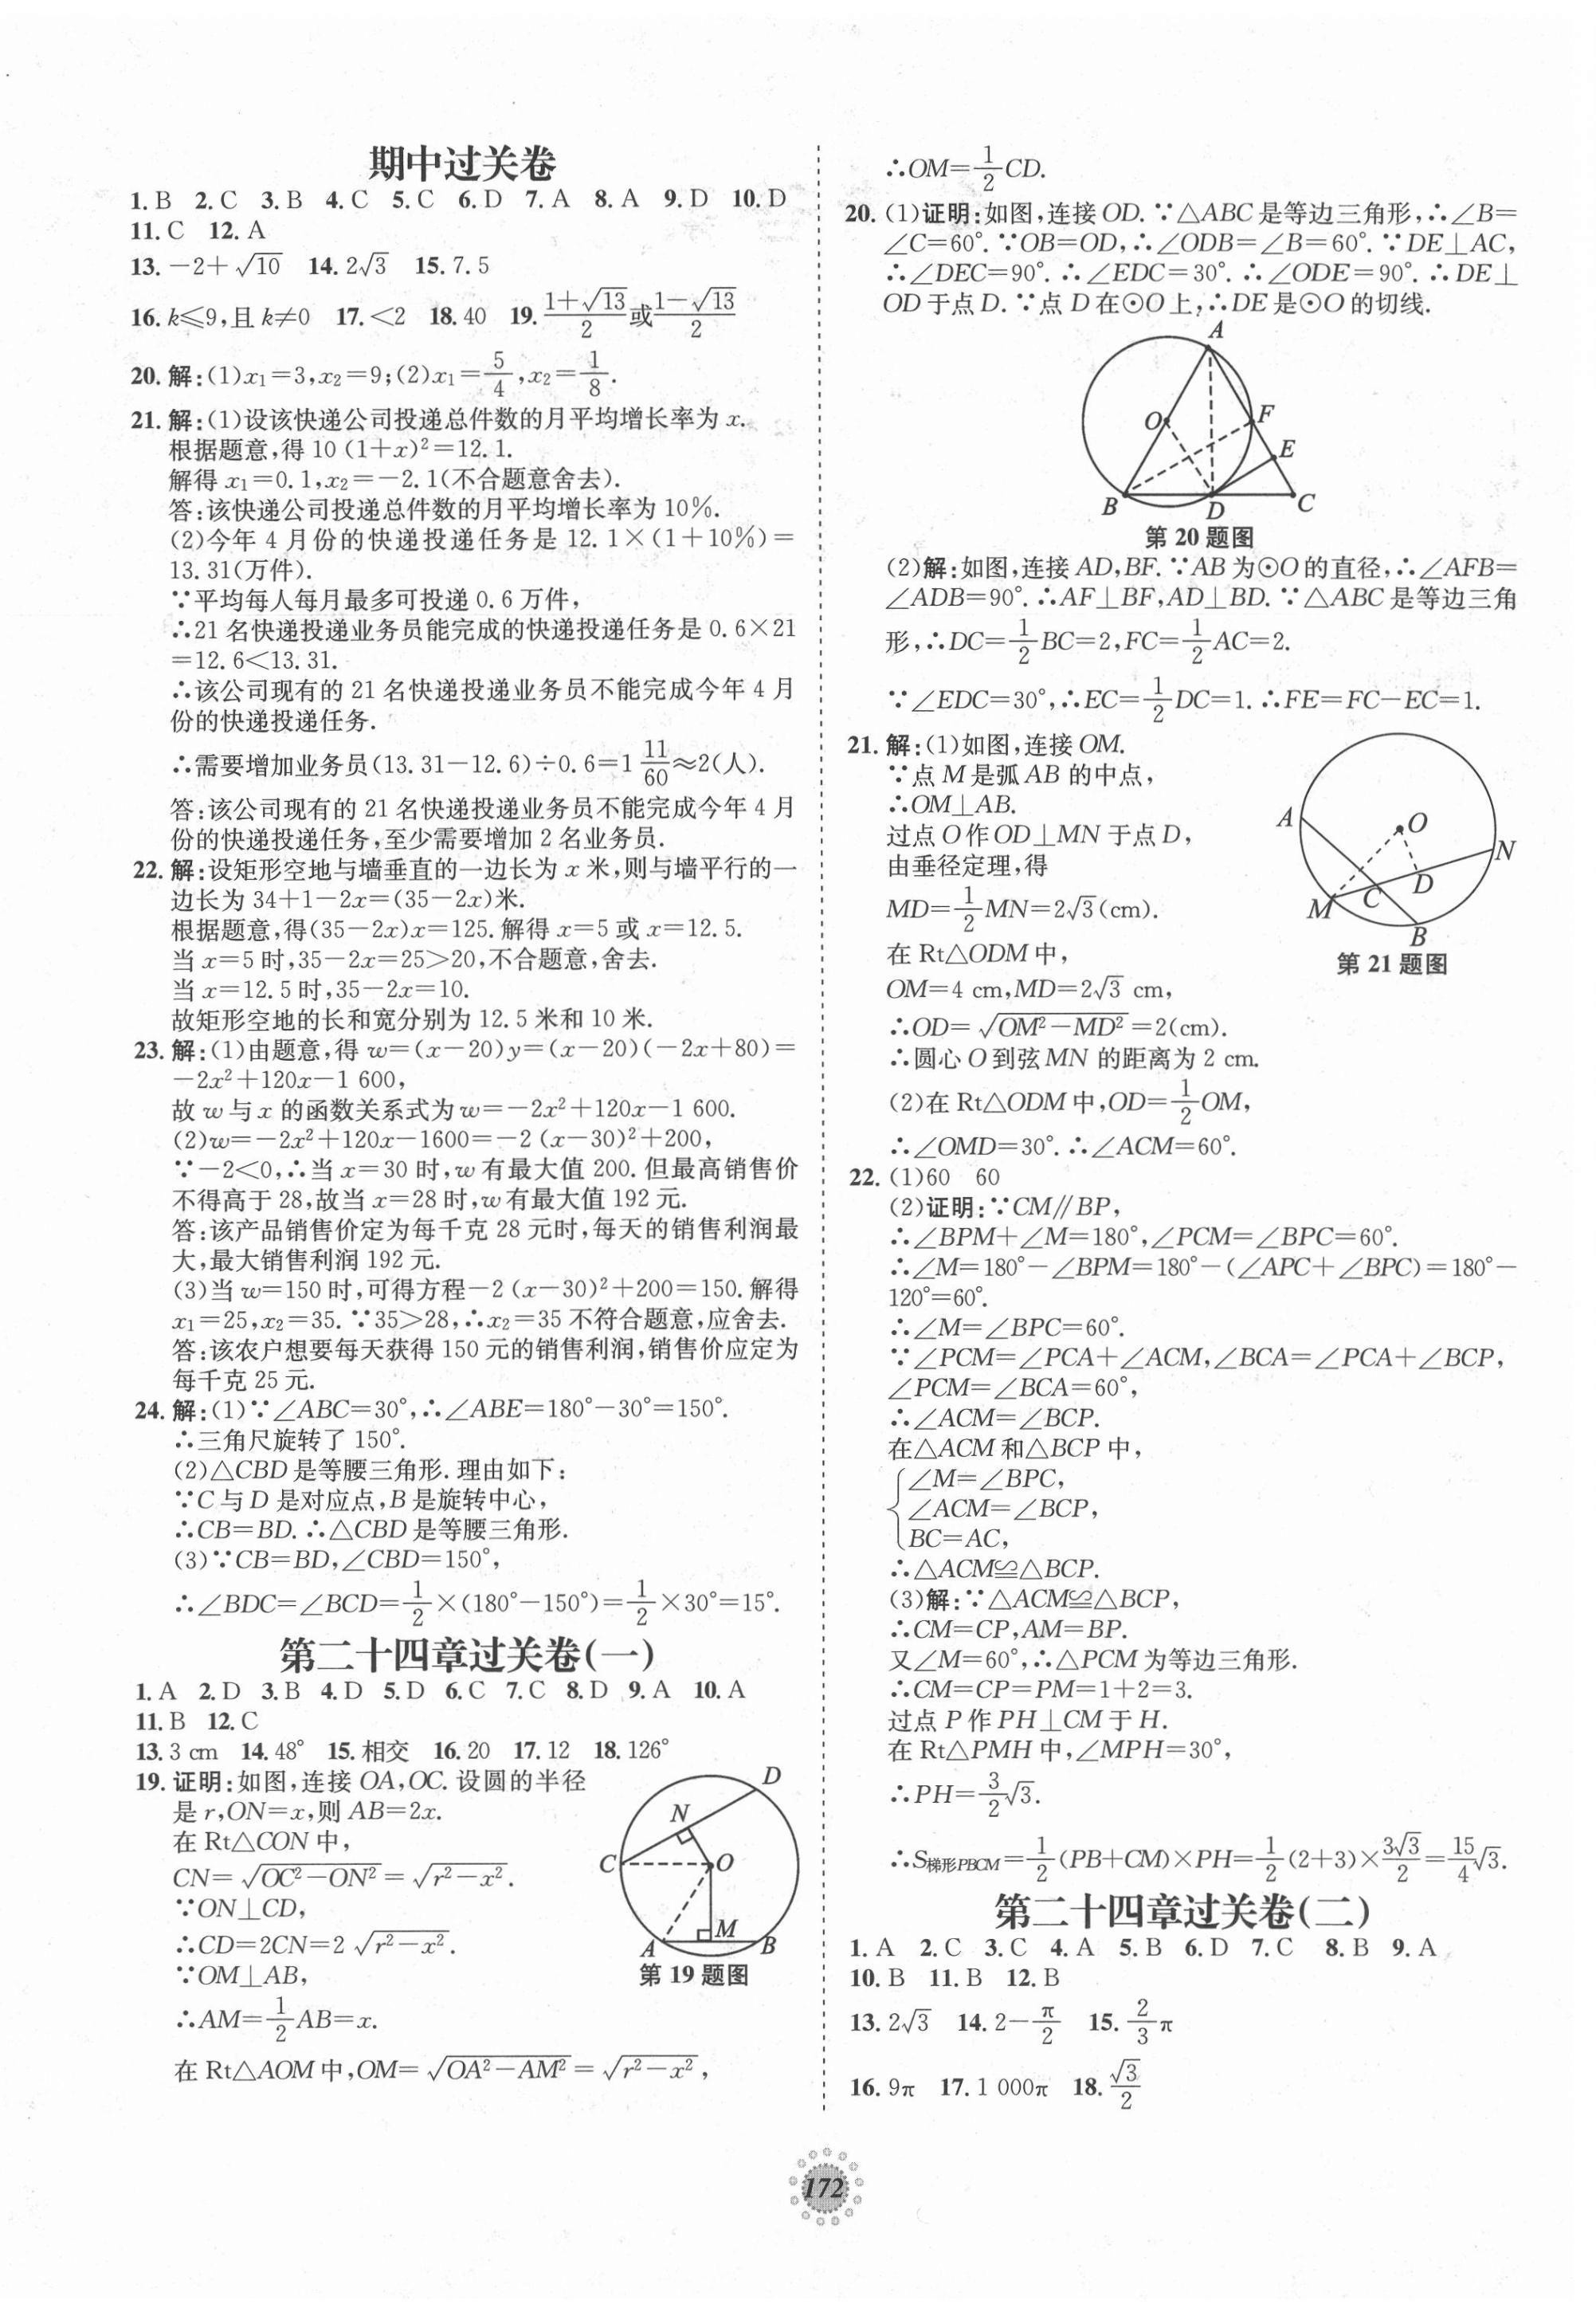 期中过关卷
1. B 2. C 3. B 4. C 5. C 6. D 7. A 8. A 9. D 10. D
11. C 12. A
13. －2＋√10 14. 2√3 15. 7.5
16. k≤9,且 k≠0 17. ＜2 18. 40 19. (1＋√13)/2 或 (1－√13)/2
20. 解:(1)x₁＝3,x₂＝9;(2)x₁＝5/4,x₂＝1/8.
21. 解:(1)设该快递公司投递总件数的月平均增长率为 x.
根据题意,得 10 (1＋x)²＝12.1.
解得 x₁＝0.1,x₂＝－2.1(不合题意舍去).
答:该快递公司投递总件数的月平均增长率为 10%.
(2)今年 4 月份的快递投递任务是 12.1×(1＋10%)＝
13.31(万件).
∵平均每人每月最多可投递 0.6 万件,
∴21 名快递投递业务员能完成的快递投递任务是 0.6×21
＝12.6＜13.31.
∴该公司现有的 21 名快递投递业务员不能完成今年 4 月
份的快递投递任务.
∴需要增加业务员(13.31－12.6)÷0.6＝1 11/60≈2(人).
答:该公司现有的 21 名快递投递业务员不能完成今年 4 月
份的快递投递任务,至少需要增加 2 名业务员.
22. 解:设矩形空地与墙垂直的一边长为 x 米,则与墙平行的一
边长为 34＋1－2x＝(35－2x)米.
根据题意,得(35－2x)x＝125. 解得 x＝5 或 x＝12.5.
当 x＝5 时,35－2x＝25＞20,不合题意,舍去.
当 x＝12.5 时,35－2x＝10.
故矩形空地的长和宽分别为 12.5 米和 10 米.
23. 解:(1)由题意,得 w＝(x－20)y＝(x－20)(－2x＋80)＝
－2x²＋120x－1 600,
故 w 与 x 的函数关系式为 w＝－2x²＋120x－1 600.
(2)w＝－2x²＋120x－1600＝－2 (x－30)²＋200,
∵－2＜0,∴当 x＝30 时,w 有最大值 200. 但最高销售价
不得高于 28,故当 x＝28 时,w 有最大值 192 元.
答:该产品销售价定为每千克 28 元时,每天的销售利润最
大,最大销售利润 192 元.
(3)当 w＝150 时,可得方程－2 (x－30)²＋200＝150. 解得
x₁＝25,x₂＝35. ∵35＞28,∴x₂＝35 不符合题意,应舍去.
答:该农户想要每天获得 150 元的销售利润,销售价应定为
每千克 25 元.
24. 解:(1)∵∠ABC＝30°,∴∠ABE＝180°－30°＝150°.
∴三角尺旋转了 150°.
(2)△CBD 是等腰三角形. 理由如下:
∵C 与 D 是对应点,B 是旋转中心,
∴CB＝BD. ∴△CBD 是等腰三角形.
(3)∵CB＝BD,∠CBD＝150°,
∴∠BDC＝∠BCD＝1/2×(180°－150°)＝1/2×30°＝15°.
第二十四章过关卷(一)
1. A 2. D 3. B 4. D 5. D 6. C 7. C 8. D 9. A 10. A
11. B 12. C
13. 3 cm 14. 48° 15. 相交 16. 20 17. 12 18. 126°
19. 证明:如图,连接 OA,OC. 设圆的半径
是 r,ON＝x,则 AB＝2x.
在 Rt△CON 中,
CN＝√(OC²－ON²)＝√(r²－x²).
∵ON⊥CD,
∴CD＝2CN＝2√(r²－x²).
∵OM⊥AB,
∴AM＝1/2AB＝x.
在 Rt△AOM 中,OM＝√(OA²－AM²)＝√(r²－x²),
D
N
C
O
M
A
B
第 19 题图
∴OM＝1/2CD.
20. (1)证明:如图,连接 OD. ∵△ABC 是等边三角形,∴∠B＝
∠C＝60°. ∵OB＝OD,∴∠ODB＝∠B＝60°. ∵DE⊥AC,
∴∠DEC＝90°. ∴∠EDC＝30°. ∴∠ODE＝90°. ∴DE⊥
OD 于点 D. ∵点 D 在⊙O 上,∴DE 是⊙O 的切线.
A
O
F
E
B
D
C
第 20 题图
(2)解:如图,连接 AD,BF. ∵AB 为⊙O 的直径,∴∠AFB＝
∠ADB＝90°. ∴AF⊥BF,AD⊥BD. ∵△ABC 是等边三角
形,∴DC＝1/2BC＝2,FC＝1/2AC＝2.
∵∠EDC＝30°,∴EC＝1/2DC＝1. ∴FE＝FC－EC＝1.
21. 解:(1)如图,连接 OM.
∵点 M 是弧 AB 的中点,
∴OM⊥AB.
过点 O 作 OD⊥MN 于点 D,
由垂径定理,得
MD＝1/2MN＝2√3(cm).
在 Rt△ODM 中,
OM＝4 cm,MD＝2√3 cm,
∴OD＝√(OM²－MD²)＝2(cm).
∴圆心 O 到弦 MN 的距离为 2 cm.
(2)在 Rt△ODM 中,OD＝1/2OM,
∴∠OMD＝30°. ∴∠ACM＝60°.
A
O
N
D
C
M
B
第 21 题图
22. (1)60 60
(2)证明:∵CM∥BP,
∴∠BPM＋∠M＝180°,∠PCM＝∠BPC＝60°.
∴∠M＝180°－∠BPM＝180°－(∠APC＋∠BPC)＝180°－
120°＝60°.
∴∠M＝∠BPC＝60°.
∵∠PCM＝∠PCA＋∠ACM,∠BCA＝∠PCA＋∠BCP,
∠PCM＝∠BCA＝60°,
∴∠ACM＝∠BCP.
在△ACM 和△BCP 中,
∠M＝∠BPC,
∠ACM＝∠BCP,
BC＝AC,
∴△ACM≌△BCP.
(3)解:∵△ACM≌△BCP,
∴CM＝CP,AM＝BP.
又∠M＝60°,∴△PCM 为等边三角形.
∴CM＝CP＝PM＝1＋2＝3.
过点 P 作 PH⊥CM 于 H.
在 Rt△PMH 中,∠MPH＝30°,
∴PH＝3/2√3.
∴S梯形PBCM＝1/2(PB＋CM)×PH＝1/2(2＋3)×3√3/2＝15/4√3.
第二十四章过关卷(二)
1. A 2. C 3. C 4. A 5. B 6. D 7. C 8. B 9. A
10. B 11. B 12. B
13. 2√3 14. 2－π/2 15. 2/3π
16. 9π 17. 1 000π 18. √3/2
172